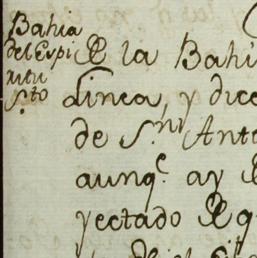 Bahia
del Espi
ritu
sto
De la Bahi
Linea, y dice
de S.ⁿ Anto
aunq.ᵉ ay
yectado